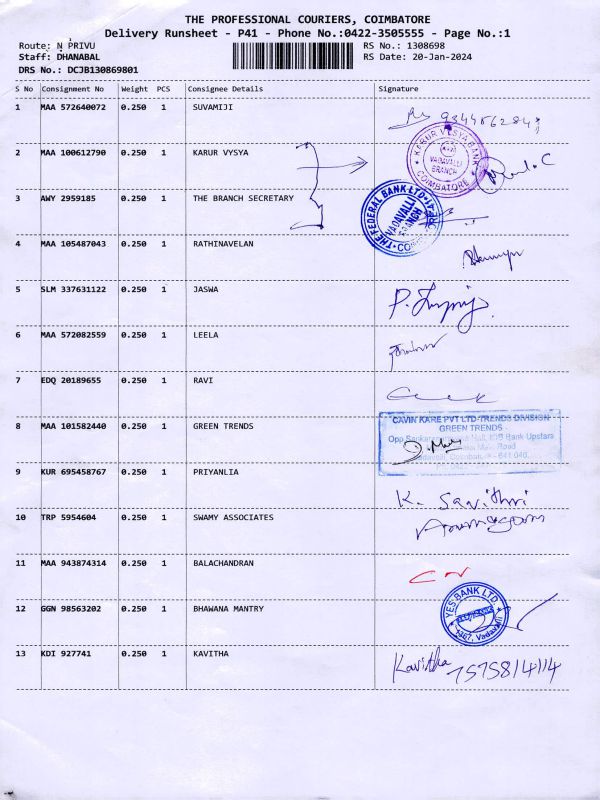 THE PROFESSIONAL COURIERS, COIMBATORE
Delivery Runsheet - P41 - Phone No.:0422-3505555 - Page No.:1
Route: N PRIVU
RS No.: 1308698
Staff: DHANABAL
RS Date: 20-Jan-2024
DRS No.: DCJB130869801
S No Consignment No Weight PCS Consignee Details Signature
1 MAA 572640072 0.250 1 SUVAMIJI
2 MAA 100612790 0.250 1 KARUR VYSYA
KARUR VYSYA BANK
VADAVALLI
BRANCH
COIMBATORE
3 AWY 2959185 0.250 1 THE BRANCH SECRETARY
THE FEDERAL BANK LTD
VADAVALLI
BRANCH
4 MAA 105487043 0.250 1 RATHINAVELAN
5 SLM 337631122 0.250 1 JASWA
6 MAA 572082559 0.250 1 LEELA
7 EDQ 20189655 0.250 1 RAVI
8 MAA 101582440 0.250 1 GREEN TRENDS
CAVIN KARE PVT LTD-TRENDS DIVISION
GREEN TRENDS
Bank Upstairs
Road
641 046
9 KUR 695458767 0.250 1 PRIYANLIA
K. Savithri
10 TRP 5954604 0.250 1 SWAMY ASSOCIATES
11 MAA 943874314 0.250 1 BALACHANDRAN
12 GGN 98563202 0.250 1 BHAWANA MANTRY
YES BANK LTD
Vadavalli
13 KDI 927741 0.250 1 KAVITHA
Kavitha